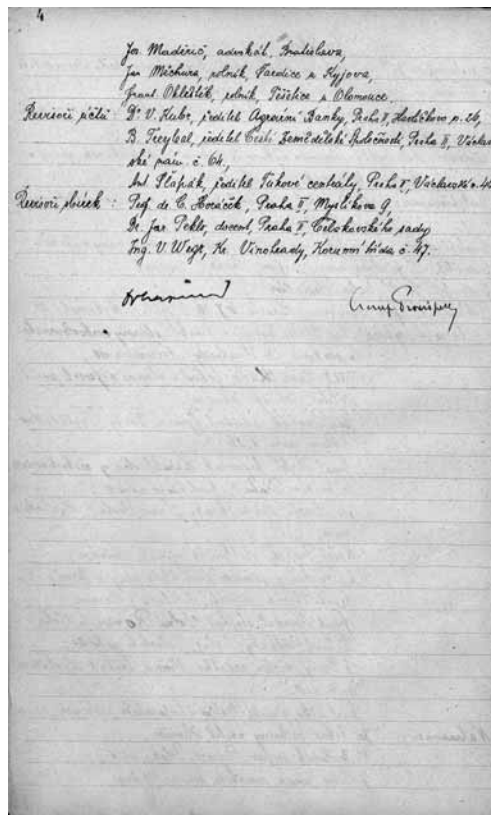 4
Jos. Maděrič, advokát, Bratislava,
Jan Míchura, rolník, Vacdice u Kyjova,
Frant. Okleštěk, rolník, Těšetice u Olomouce.
Revisoři účtů : Dr V. Kubr, ředitel Agrární Banky, Praha II, Havlíčkovo n. 24,
B. Treybal, ředitel České Zemědělské Společnosti, Praha II, Václav-
ské nám. č. 64,
Ant. Šlapák, ředitel Tukové centrály, Praha II, Václavské n.
Revisoři sbírek : Prof. dr C. Horáček, Praha II, Myslíkova 9,
Dr. Jar. Peklo, docent, Praha II, Čelakovského sady
Ing. V. Kr. Vinohrady, Korunní třída č. 47.